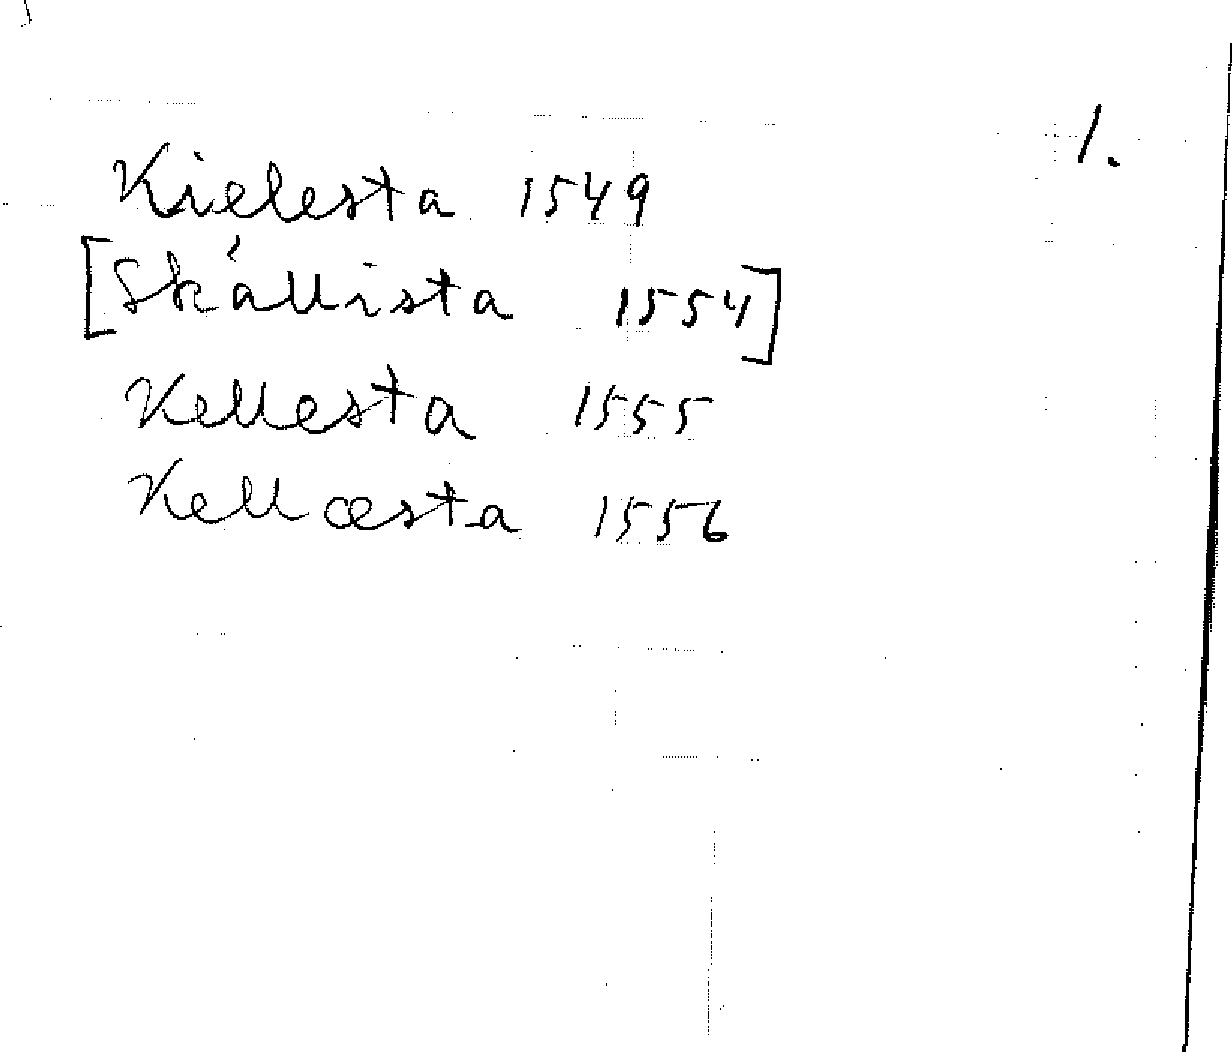 1.
Kielesta 1549
[Skállista 1554]
Kellesta 1555
Kellœsta 1556